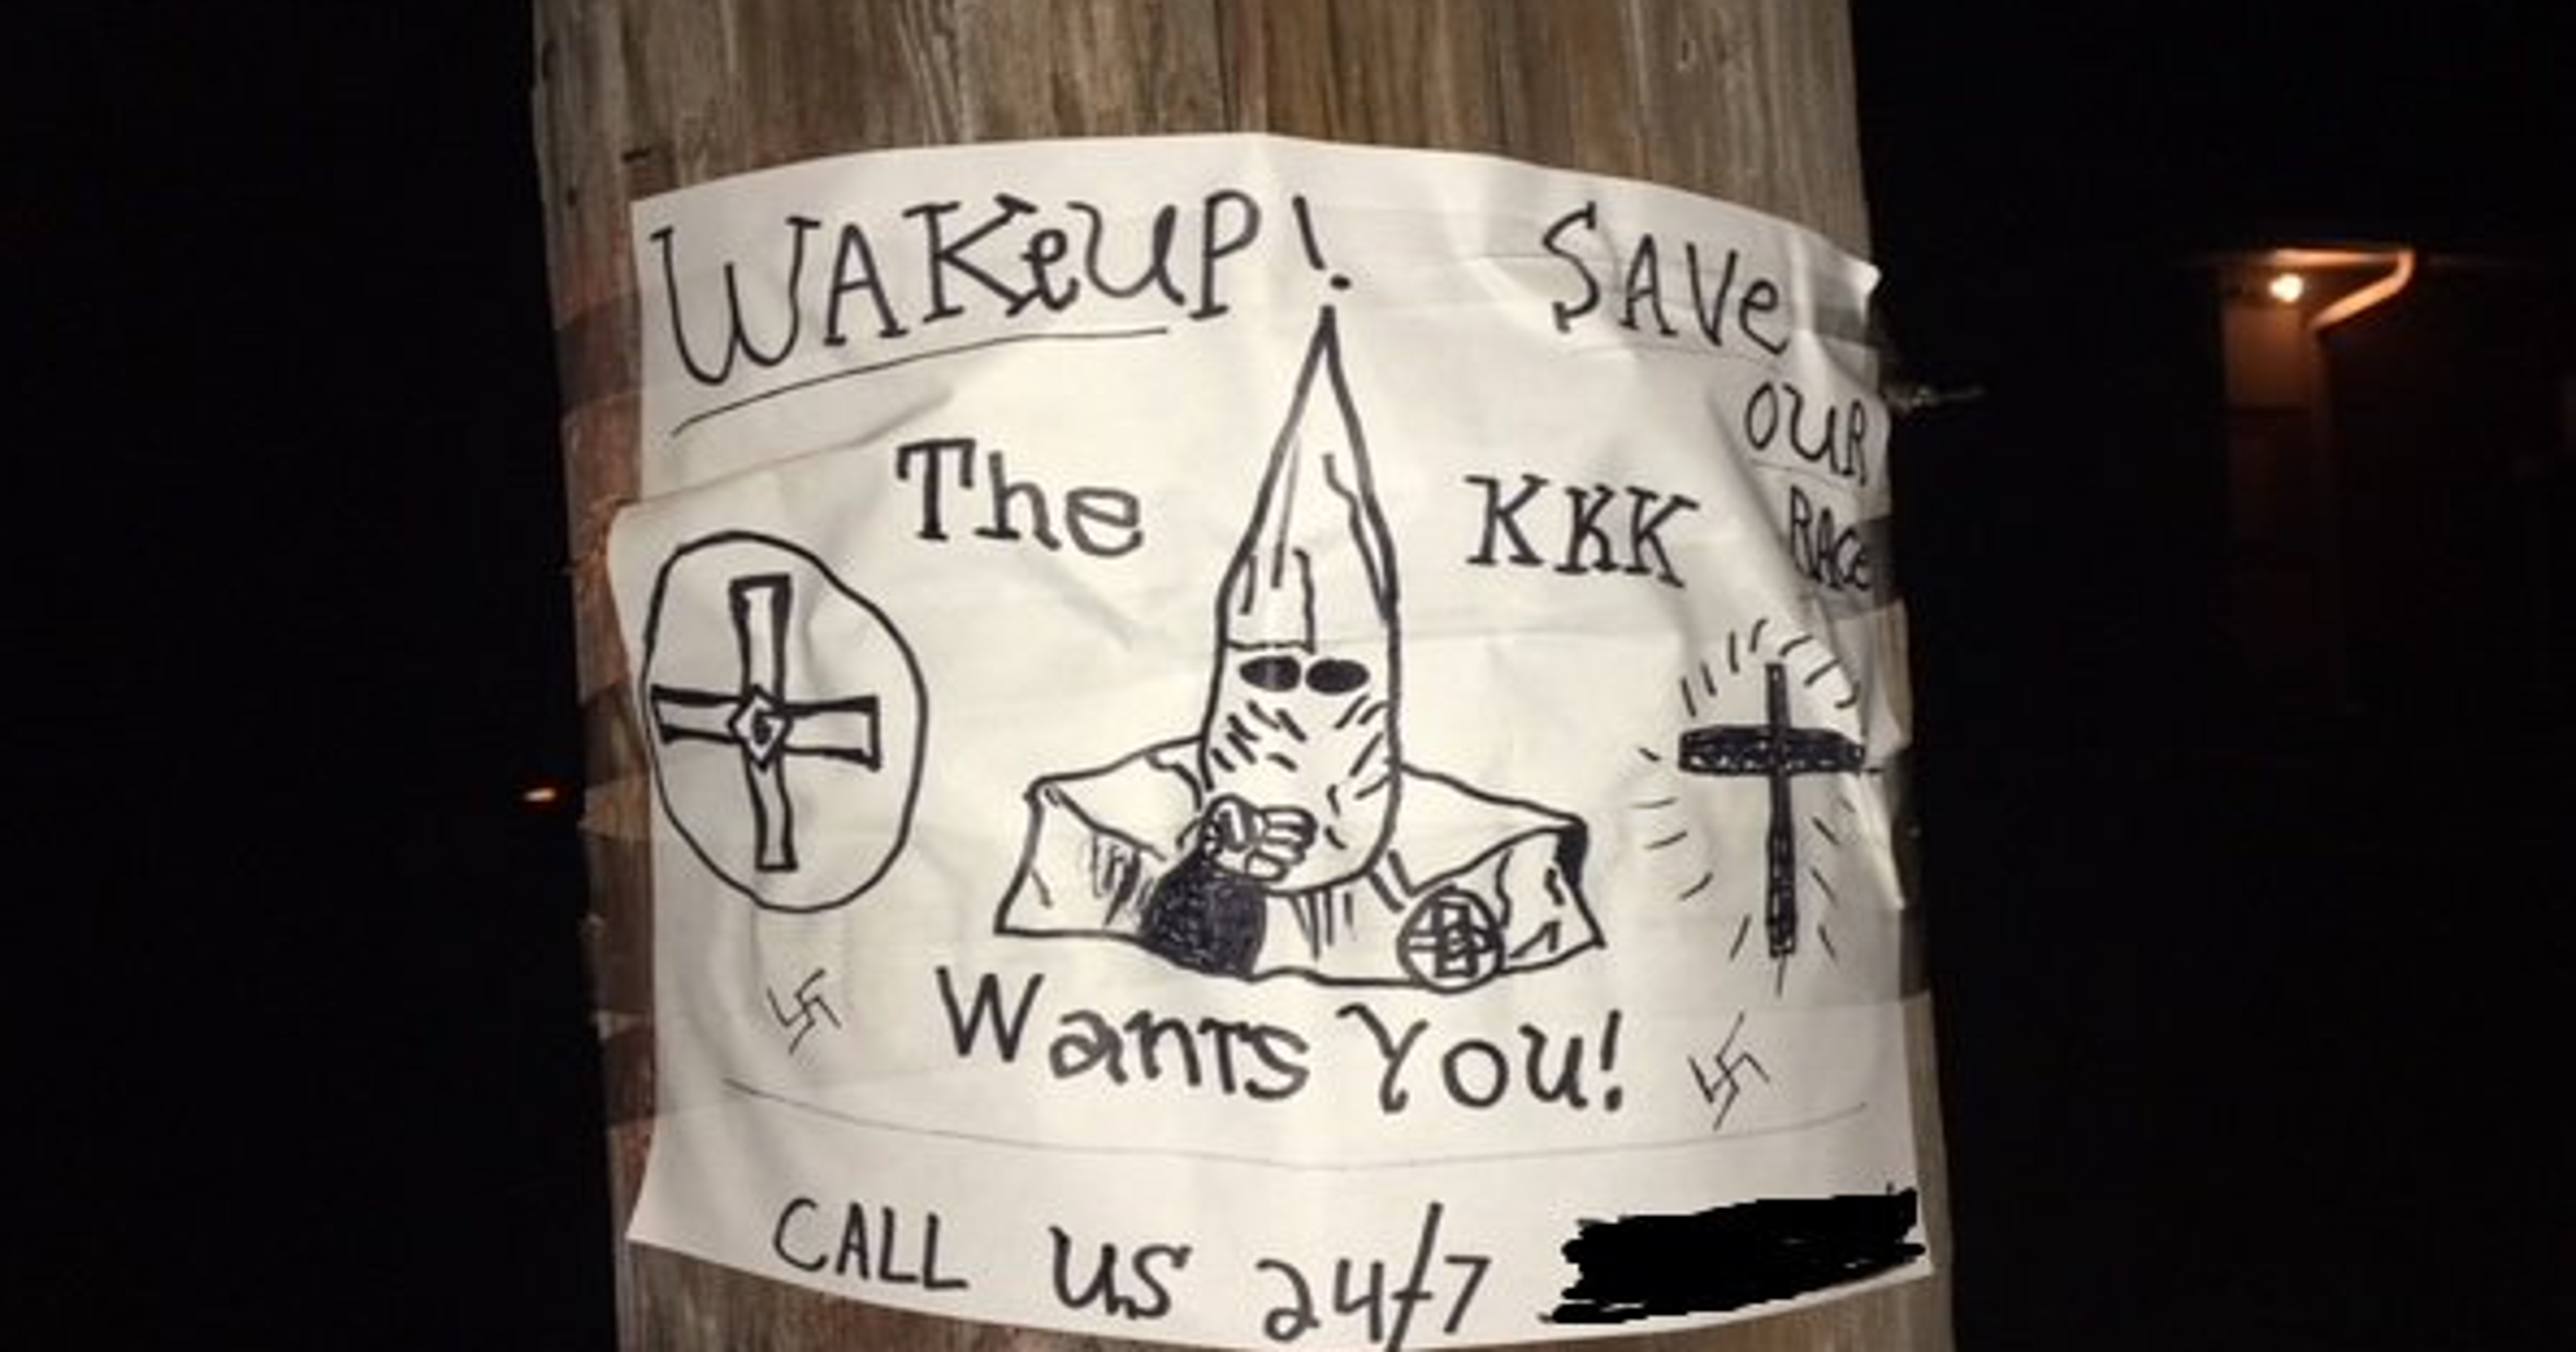 WAKeUP! SAVe
OUR
RACe
The KKK
G
Wants You!
CALL US 24/7